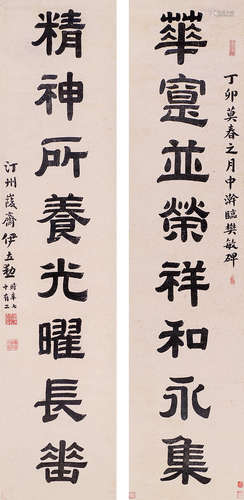 華寔並榮祥和永集
丁卯莫春之月中澣臨樊敏碑
精神所養光曜長
汀州葰齋伊立勳時年七
十有二